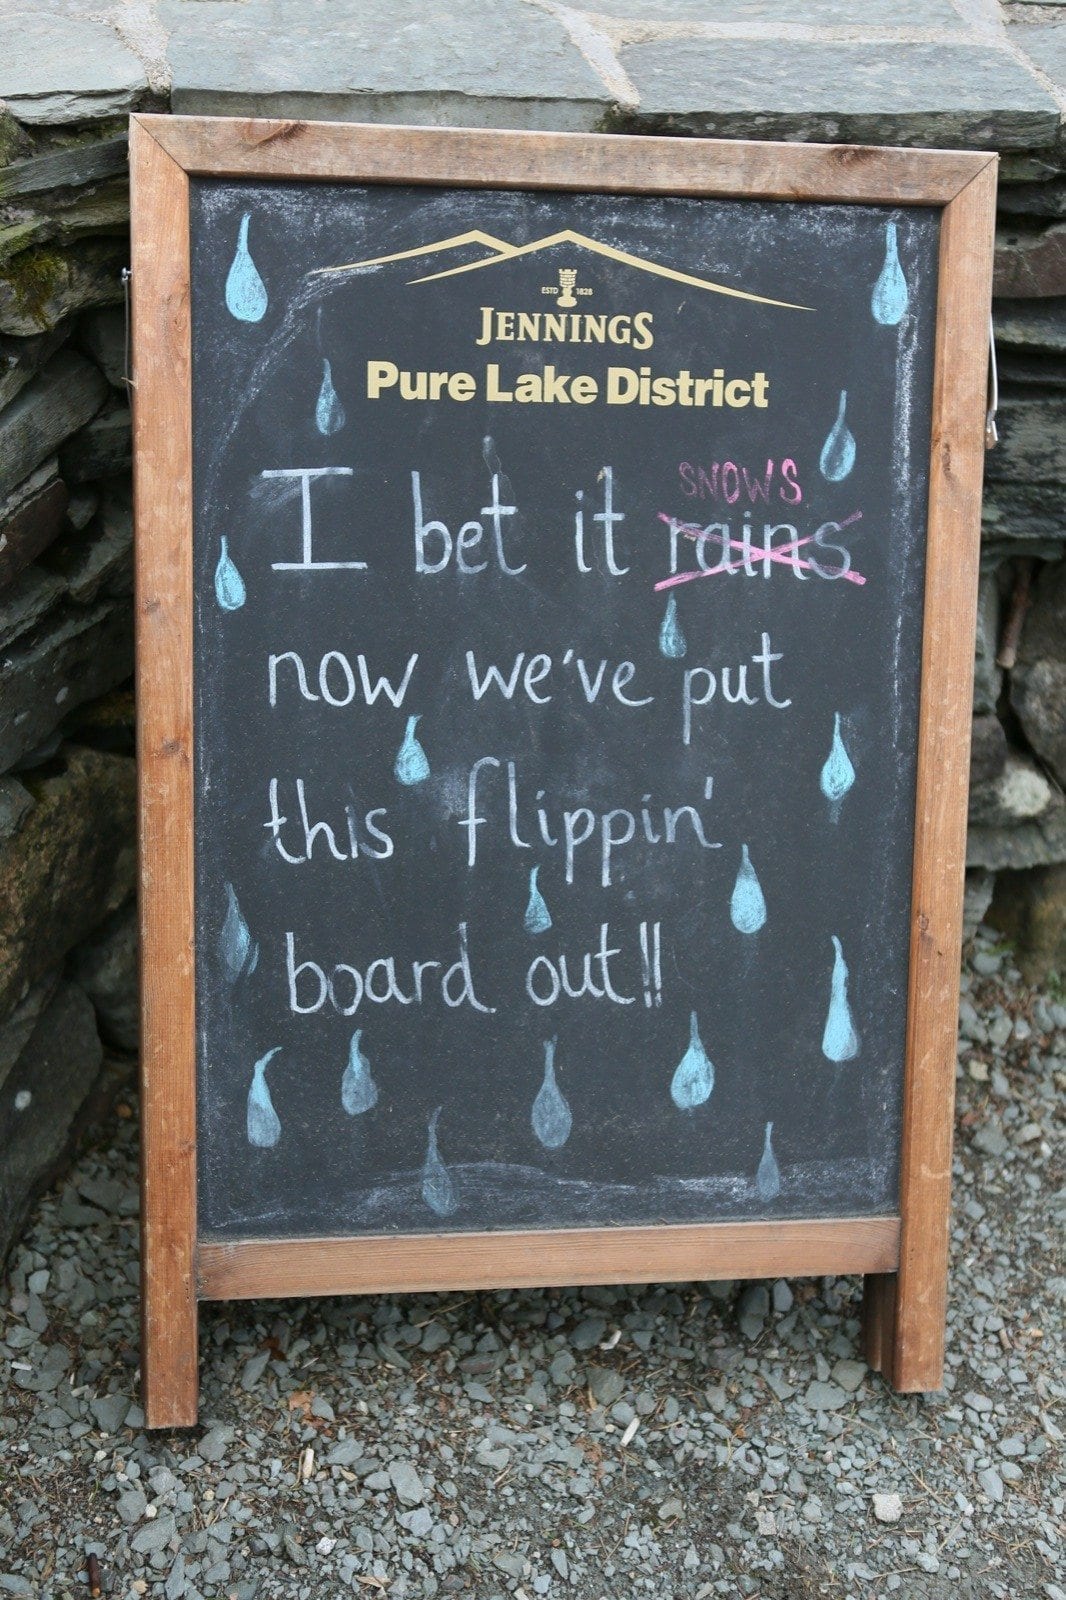 ESTD 1828
JENNINGS
Pure Lake District
SNOWS
I bet it rains
now we've put
this flippin'
board out!!